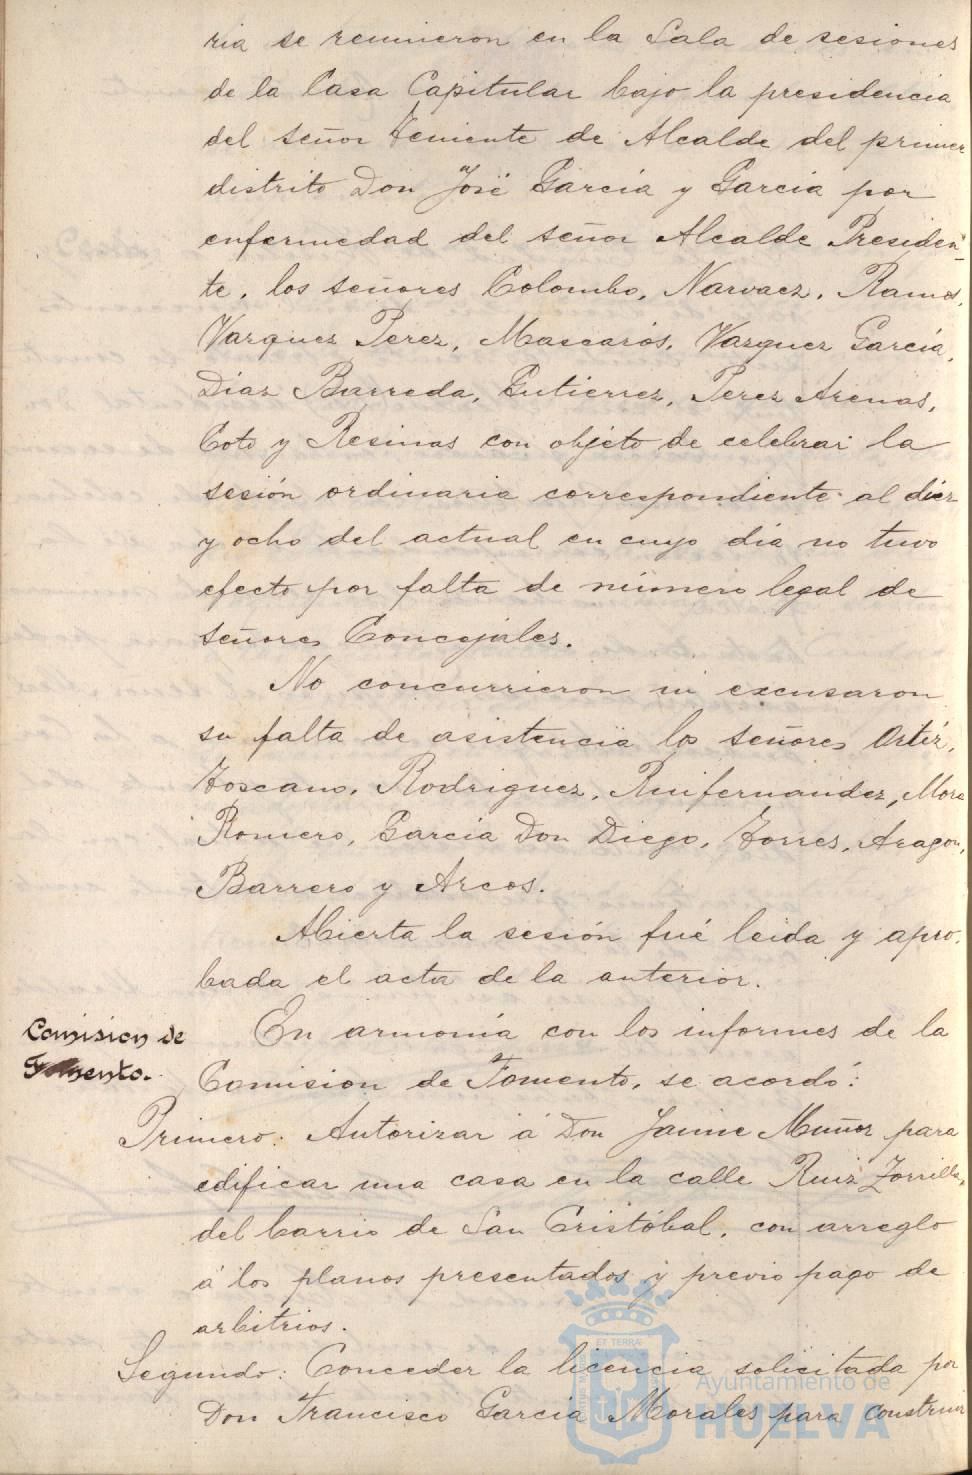 ria se reunieron en la Sala de sesiones
de la Casa Capitular bajo la presidencia
del señor Teniente de Alcalde del primer
distrito Don José García y García por
enfermedad del señor Alcalde Presiden-
te, los señores Colombo, Narvaez, Ramos,
Vazquez Perez, Mascarós, Vazquez García,
Diaz Barreda, Gutierrez, Perez Arenas,
Coto y Resinas con objeto de celebrar la
sesión ordinaria correspondiente al diez
y ocho del actual en cuyo día no tuvo
efecto por falta de número legal de
señores Concejales.
No concurrieron ni excusaron
su falta de asistencia los señores
Toscano, Rodriguez, Ruifernandez, Mora
Romero, García Don Diego, Torres, Aragon,
Barrero y Arcos.
Abierta la sesión fué leida y apro-
bada el acta de la anterior.
Comision de
Fomento.
En armonía con los informes de la
Comision de Fomento, se acordó:
Primero: Autorizar á Don Jaime Muñoz para
edificar una casa en la calle Ruiz Zorrilla,
del barrio de San Cristóbal, con arreglo
á los planos presentados y previo pago de
arbitrios.
Segundo: Conceder la licencia solicitada por
Don Francisco García Morales para construir
ET TERRA
Ayuntamiento de
HUELVA